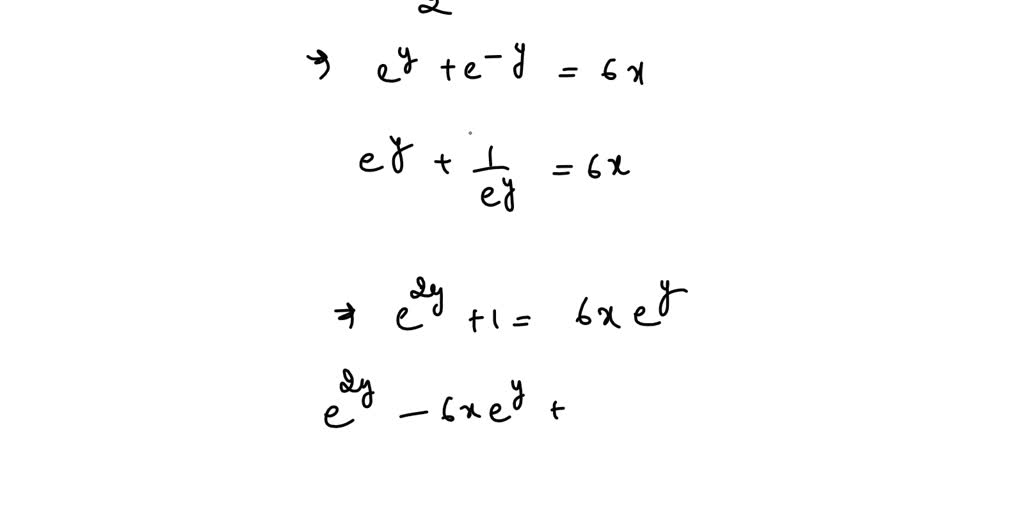 2
⇒ e^y + e^-y = 6x
e^y + 1/e^y = 6x
⇒ e^2y + 1 = 6x e^y
e^2y - 6x e^y +